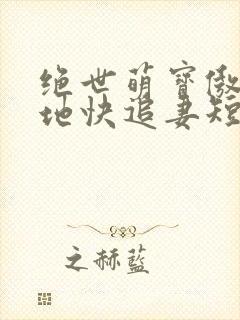 绝世萌寶傲
地快追妻短
之赫藍